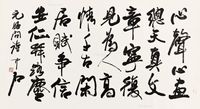 心聲心畫
總失真文
章寧復
見為人高
情千古閑
居賦爭信
安仁拜路塵
元好問詩